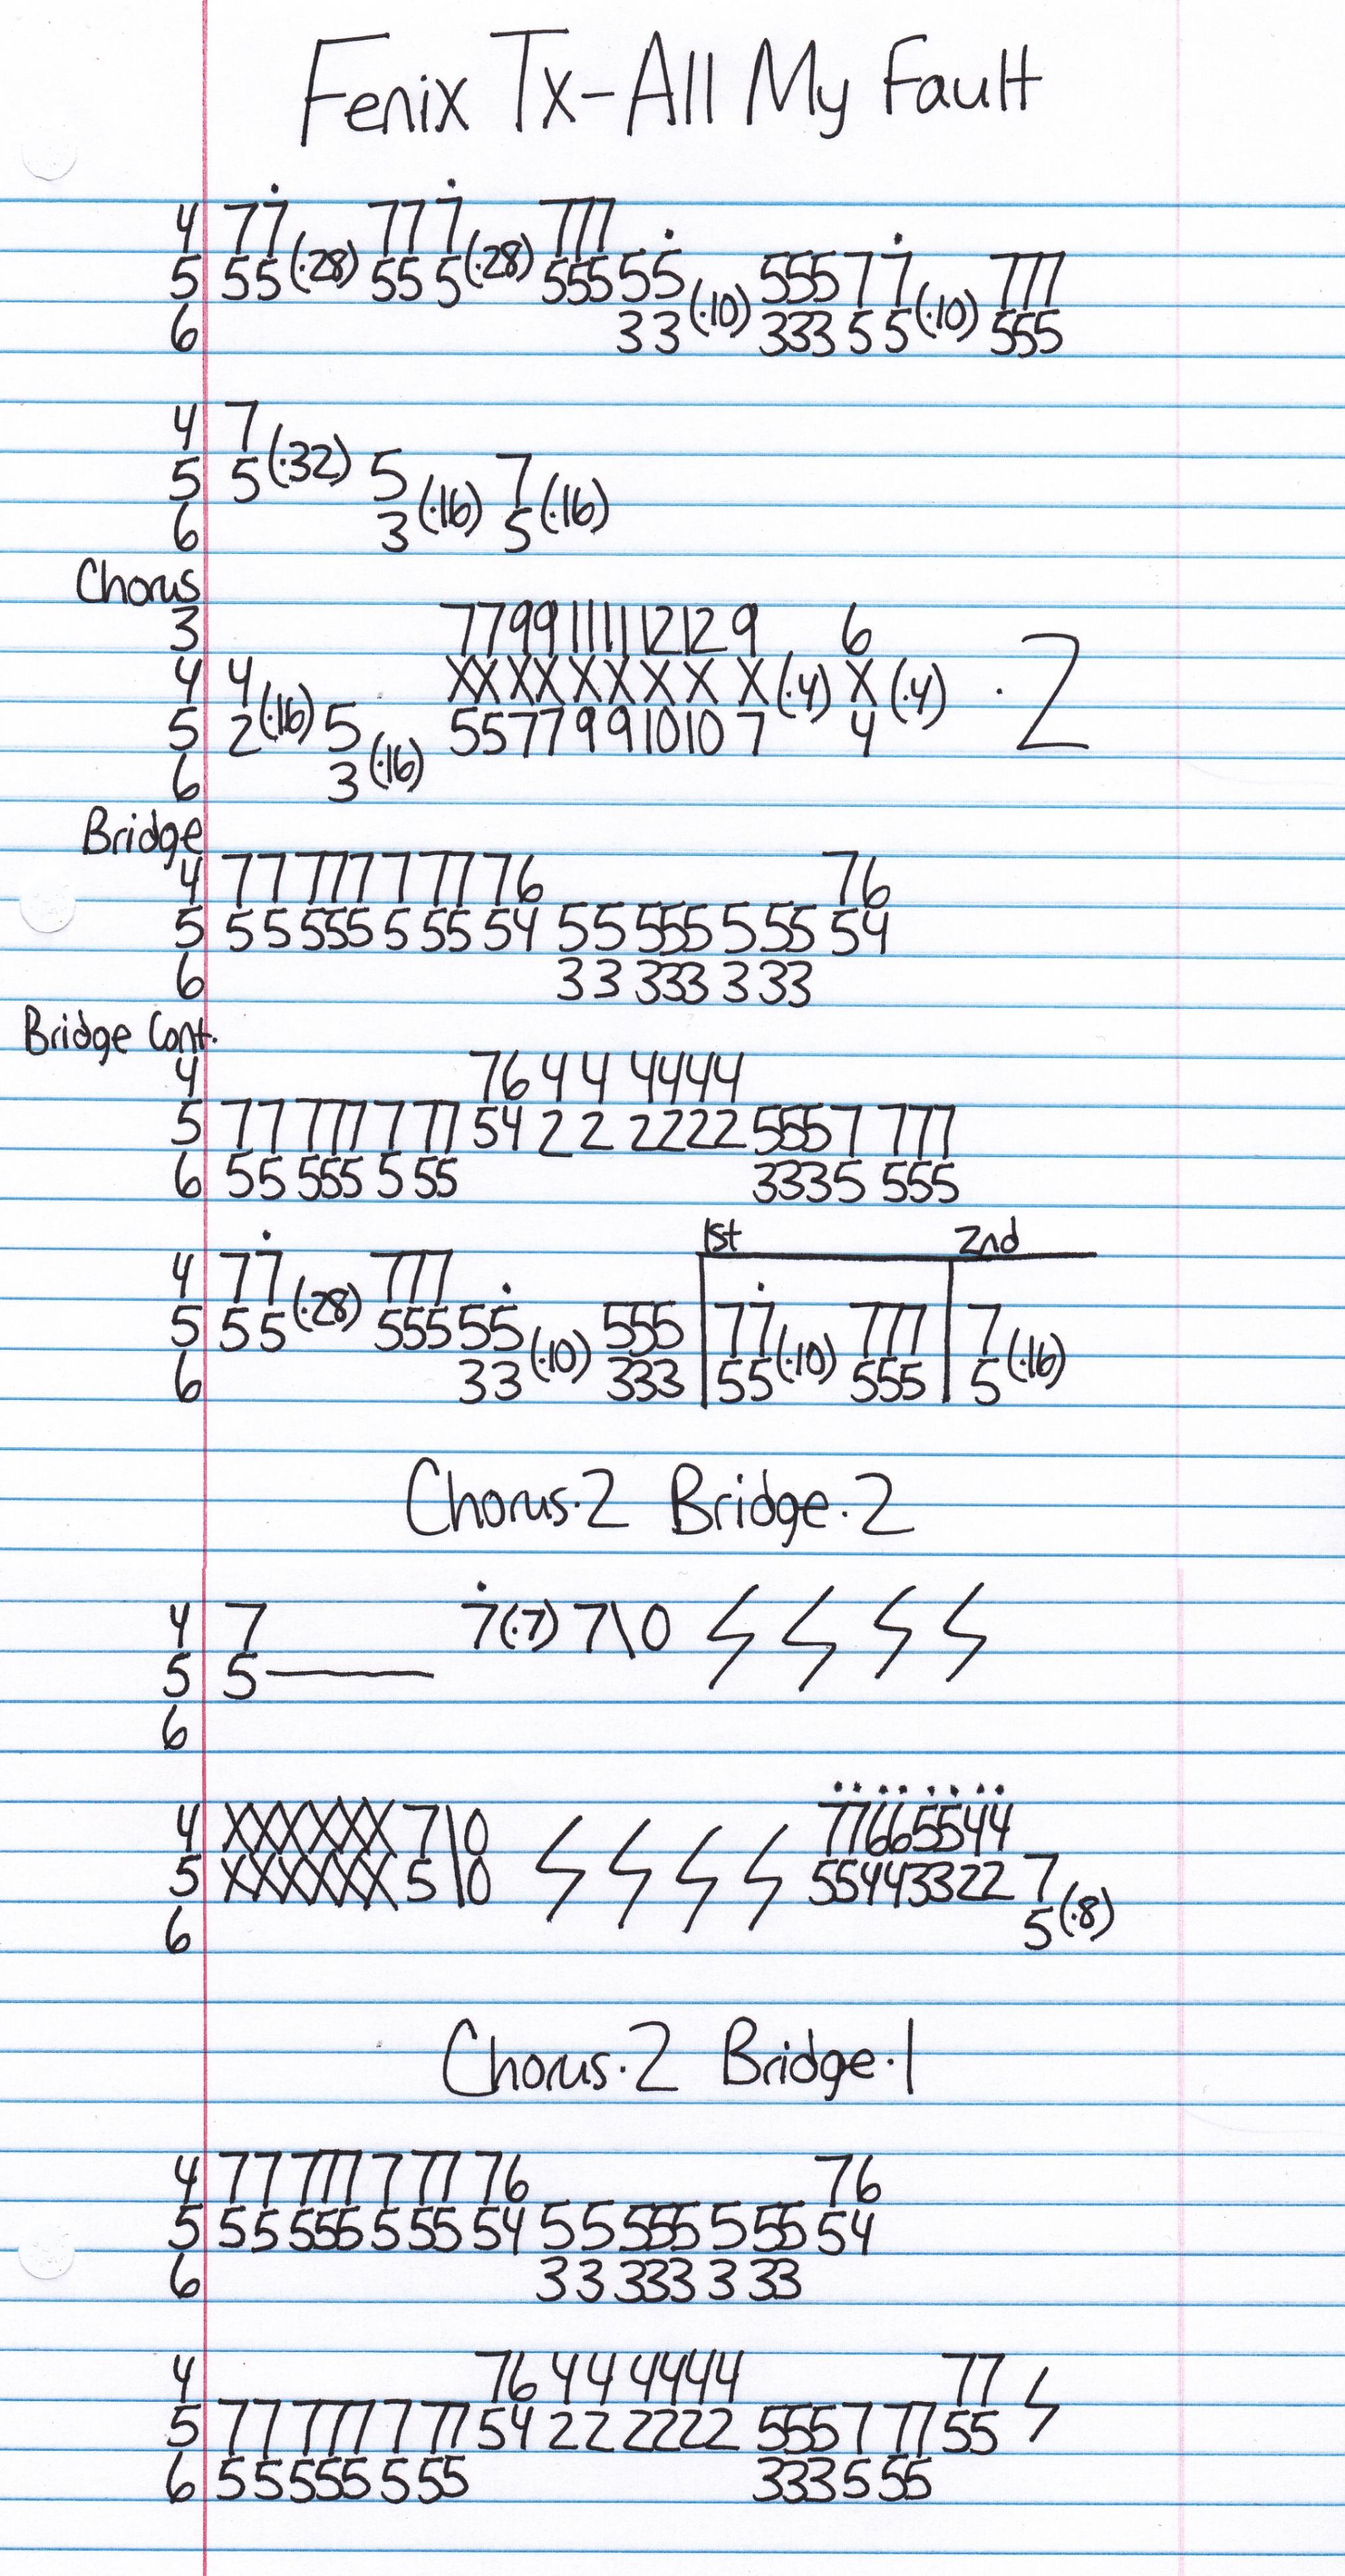 Fenix Tx-All My Fault
4 77 777 777
5 55(·28) 55 5(·28) 555 55 555 77 777
6 33(·10) 333 55(·10) 555
4 7
5 5(·32) 5 7
6 3(·16) 5(·16)
Chorus
3 7799111112129 6
4 4 XXXXXXXXX(·4) X(·4) ·2
5 2(·16) 5 55779910107 4
6 3(·16)
Bridge
4 77 777 7 77 76 76
5 55 555 5 55 54 55 555 5 55 54
6 33 333 3 33
Bridge Cont.
4 76 44 4444
5 77 777 7 77 54 22 2222 5557 777
6 55 555 5 55 3335 555
1st 2nd
4 77 777
5 55(·28) 555 55 555 77 777 7
6 33(·10) 333 55(·10) 555 5(·16)
Chorus·2 Bridge·2
4 7 7(·7) 7\0
5 5
6
4 XXXXXX 7\0 77665544
5 XXXXXX 5\0 55443322 7
6 5(·8)
Chorus·2 Bridge·1
4 77 777 7 77 76 76
5 55 555 5 55 54 55 555 5 55 54
6 33 333 3 33
4 76 44 4444 77
5 77 777 7 77 54 22 2222 5557 77 55
6 55 555 5 55 333 5 55